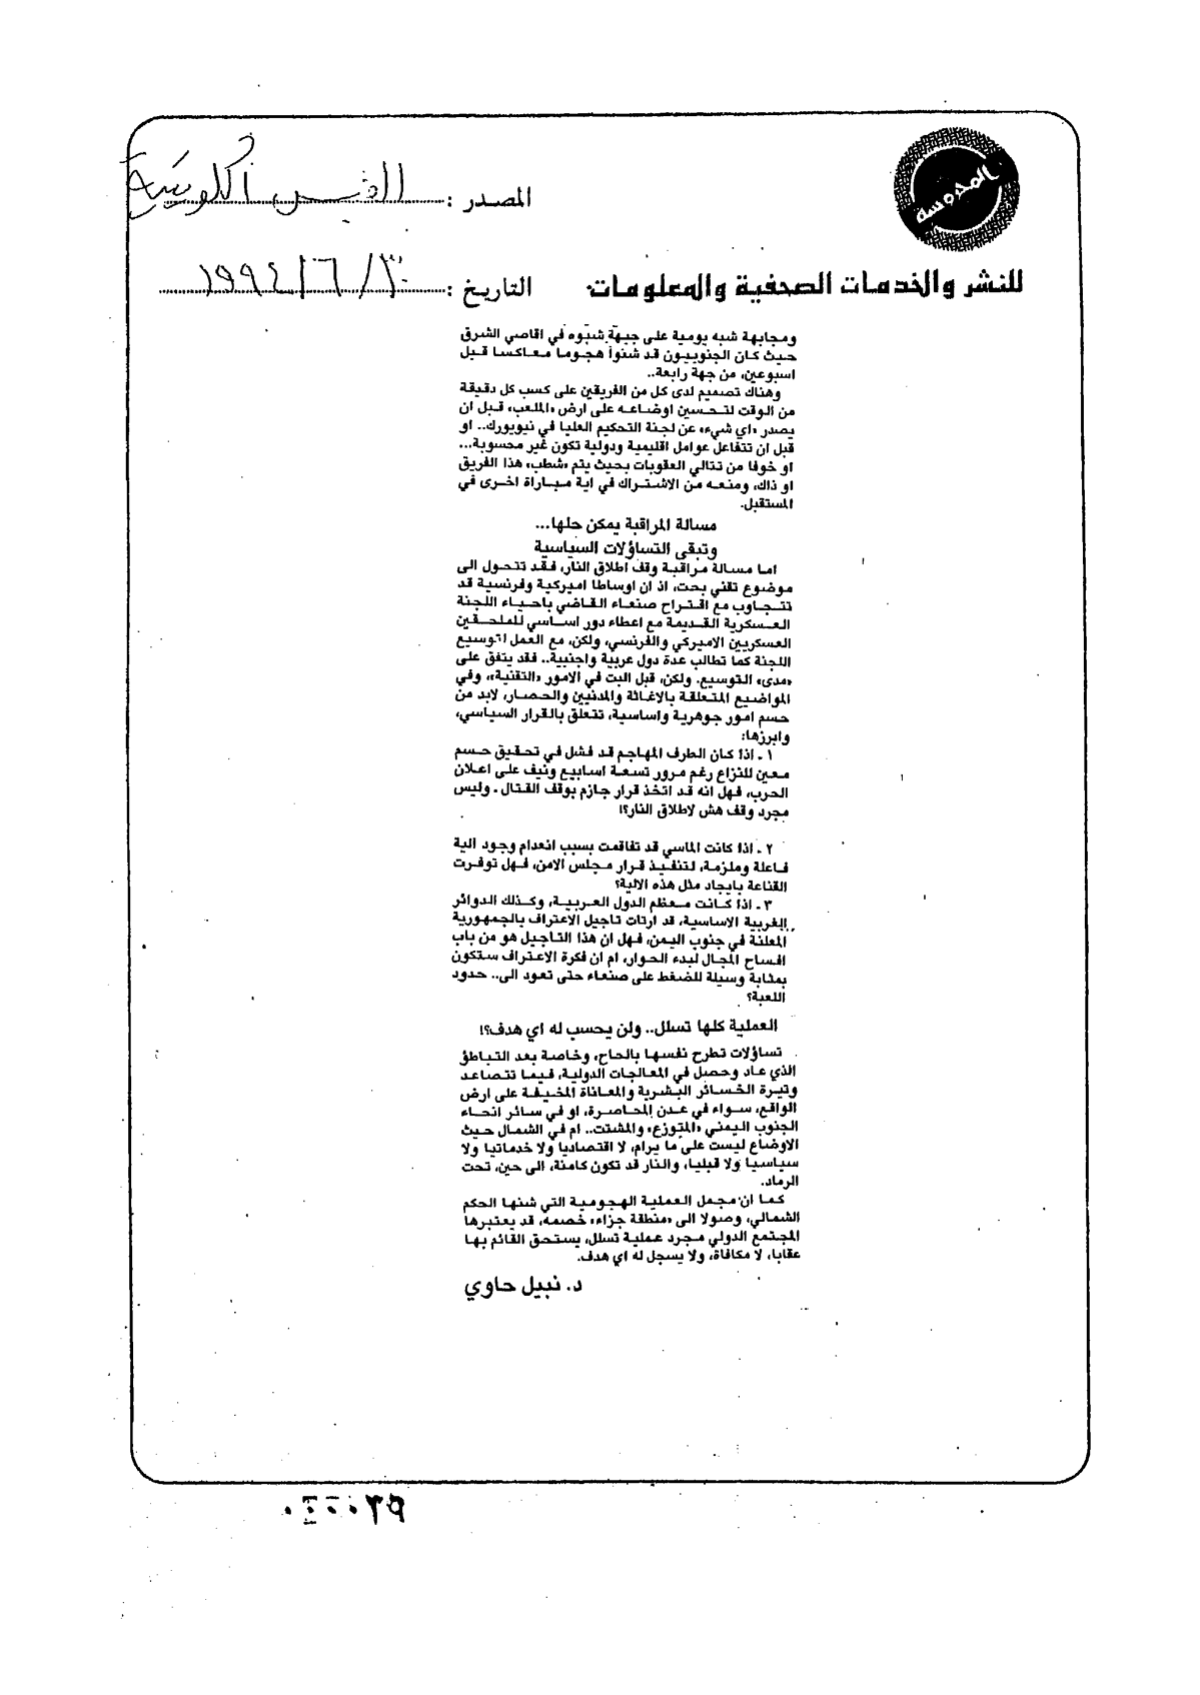 المحروسة
المصدر : القبس الكويتية
للنشر والخدمات الصحفية والمعلومات
التاريخ : ٣٠/٦/١٩٩٤
ومجابهة شبه يومية على جبهة شبوه في اقاصي الشرق
حيث كان الجنوبيون قد شنوا هجوما معاكسا قبل
اسبوعين، من جهة رابعة..
وهناك تصميم لدى كل من الفريقين على كسب كل دقيقة
من الوقت لتحسين اوضاعه على ارض «الملعب» قبل ان
يصدر «اي شيء» عن لجنة التحكيم العليا في نيويورك.. او
قبل ان تتفاعل عوامل اقليمية ودولية تكون غير محسوبة...
او خوفا من تتالي العقوبات بحيث يتم «شطب» هذا الفريق
او ذاك، ومنعه من الاشتراك في اية مباراة اخرى في
المستقبل.
مسالة المراقبة يمكن حلها...
وتبقى التساؤلات السياسية
اما مسالة مراقبة وقف اطلاق النار، فقد تتحول الى
موضوع تقني بحت، اذ ان اوساطا اميركية وفرنسية قد
تتجاوب مع اقتراح صنعاء القاضي باحياء اللجنة
العسكرية القديمة مع اعطاء دور اساسي للملحقين
العسكريين الاميركي والفرنسي، ولكن، مع العمل لتوسيع
اللجنة كما تطالب عدة دول عربية واجنبية.. فقد يتفق على
«مدى» التوسيع. ولكن، قبل البت في الامور «التقنية»، وفي
المواضيع المتعلقة بالاغاثة والمدنيين والحصار، لابد من
حسم امور جوهرية واساسية، تتعلق بالقرار السياسي،
وابرزها:
١ ـ اذا كان الطرف المهاجم قد فشل في تحقيق حسم
معين للنزاع رغم مرور تسعة اسابيع ونيف على اعلان
الحرب، فهل انه قد اتخذ قرار جازم بوقف القتال ـ وليس
مجرد وقف هش لاطلاق النار؟!
٢ ـ اذا كانت الماسي قد تفاقمت بسبب انعدام وجود الية
فاعلة وملزمة، لتنفيذ قرار مجلس الامن، فهل توفرت
القناعة بايجاد مثل هذه الالية؟
٣ ـ اذا كانت معظم الدول العربية، وكذلك الدوائر
الغربية الاساسية، قد ارتات تاجيل الاعتراف بالجمهورية
المعلنة في جنوب اليمن، فهل ان هذا التاجيل هو من باب
افساح المجال لبدء الحوار، ام ان فكرة الاعتراف ستكون
بمثابة وسيلة للضغط على صنعاء حتى تعود الى.. حدود
اللعبة؟
العملية كلها تسلل.. ولن يحسب له اي هدف؟!
تساؤلات تطرح نفسها بالحاح، وخاصة بعد التباطؤ
الذي عاد وحصل في المعالجات الدولية، فيما تتصاعد
وتيرة الخسائر البشرية والمعاناة المخيفة على ارض
الواقع، سواء في عدن المحاصرة، او في سائر انحاء
الجنوب اليمني «المتوزع» والمشتت.. ام في الشمال حيث
الاوضاع ليست على ما يرام، لا اقتصاديا ولا خدماتيا ولا
سياسيا ولا قبليا، والنار قد تكون كامنة، الى حين، تحت
الرماد.
كما ان مجمل العملية الهجومية التي شنها الحكم
الشمالي، وصولا الى «منطقة جزاء» خصمه، قد يعتبرها
المجتمع الدولي مجرد عملية تسلل، يستحق القائم بها
عقابا، لا مكافاة، ولا يسجل له اي هدف.
د. نبيل حاوي